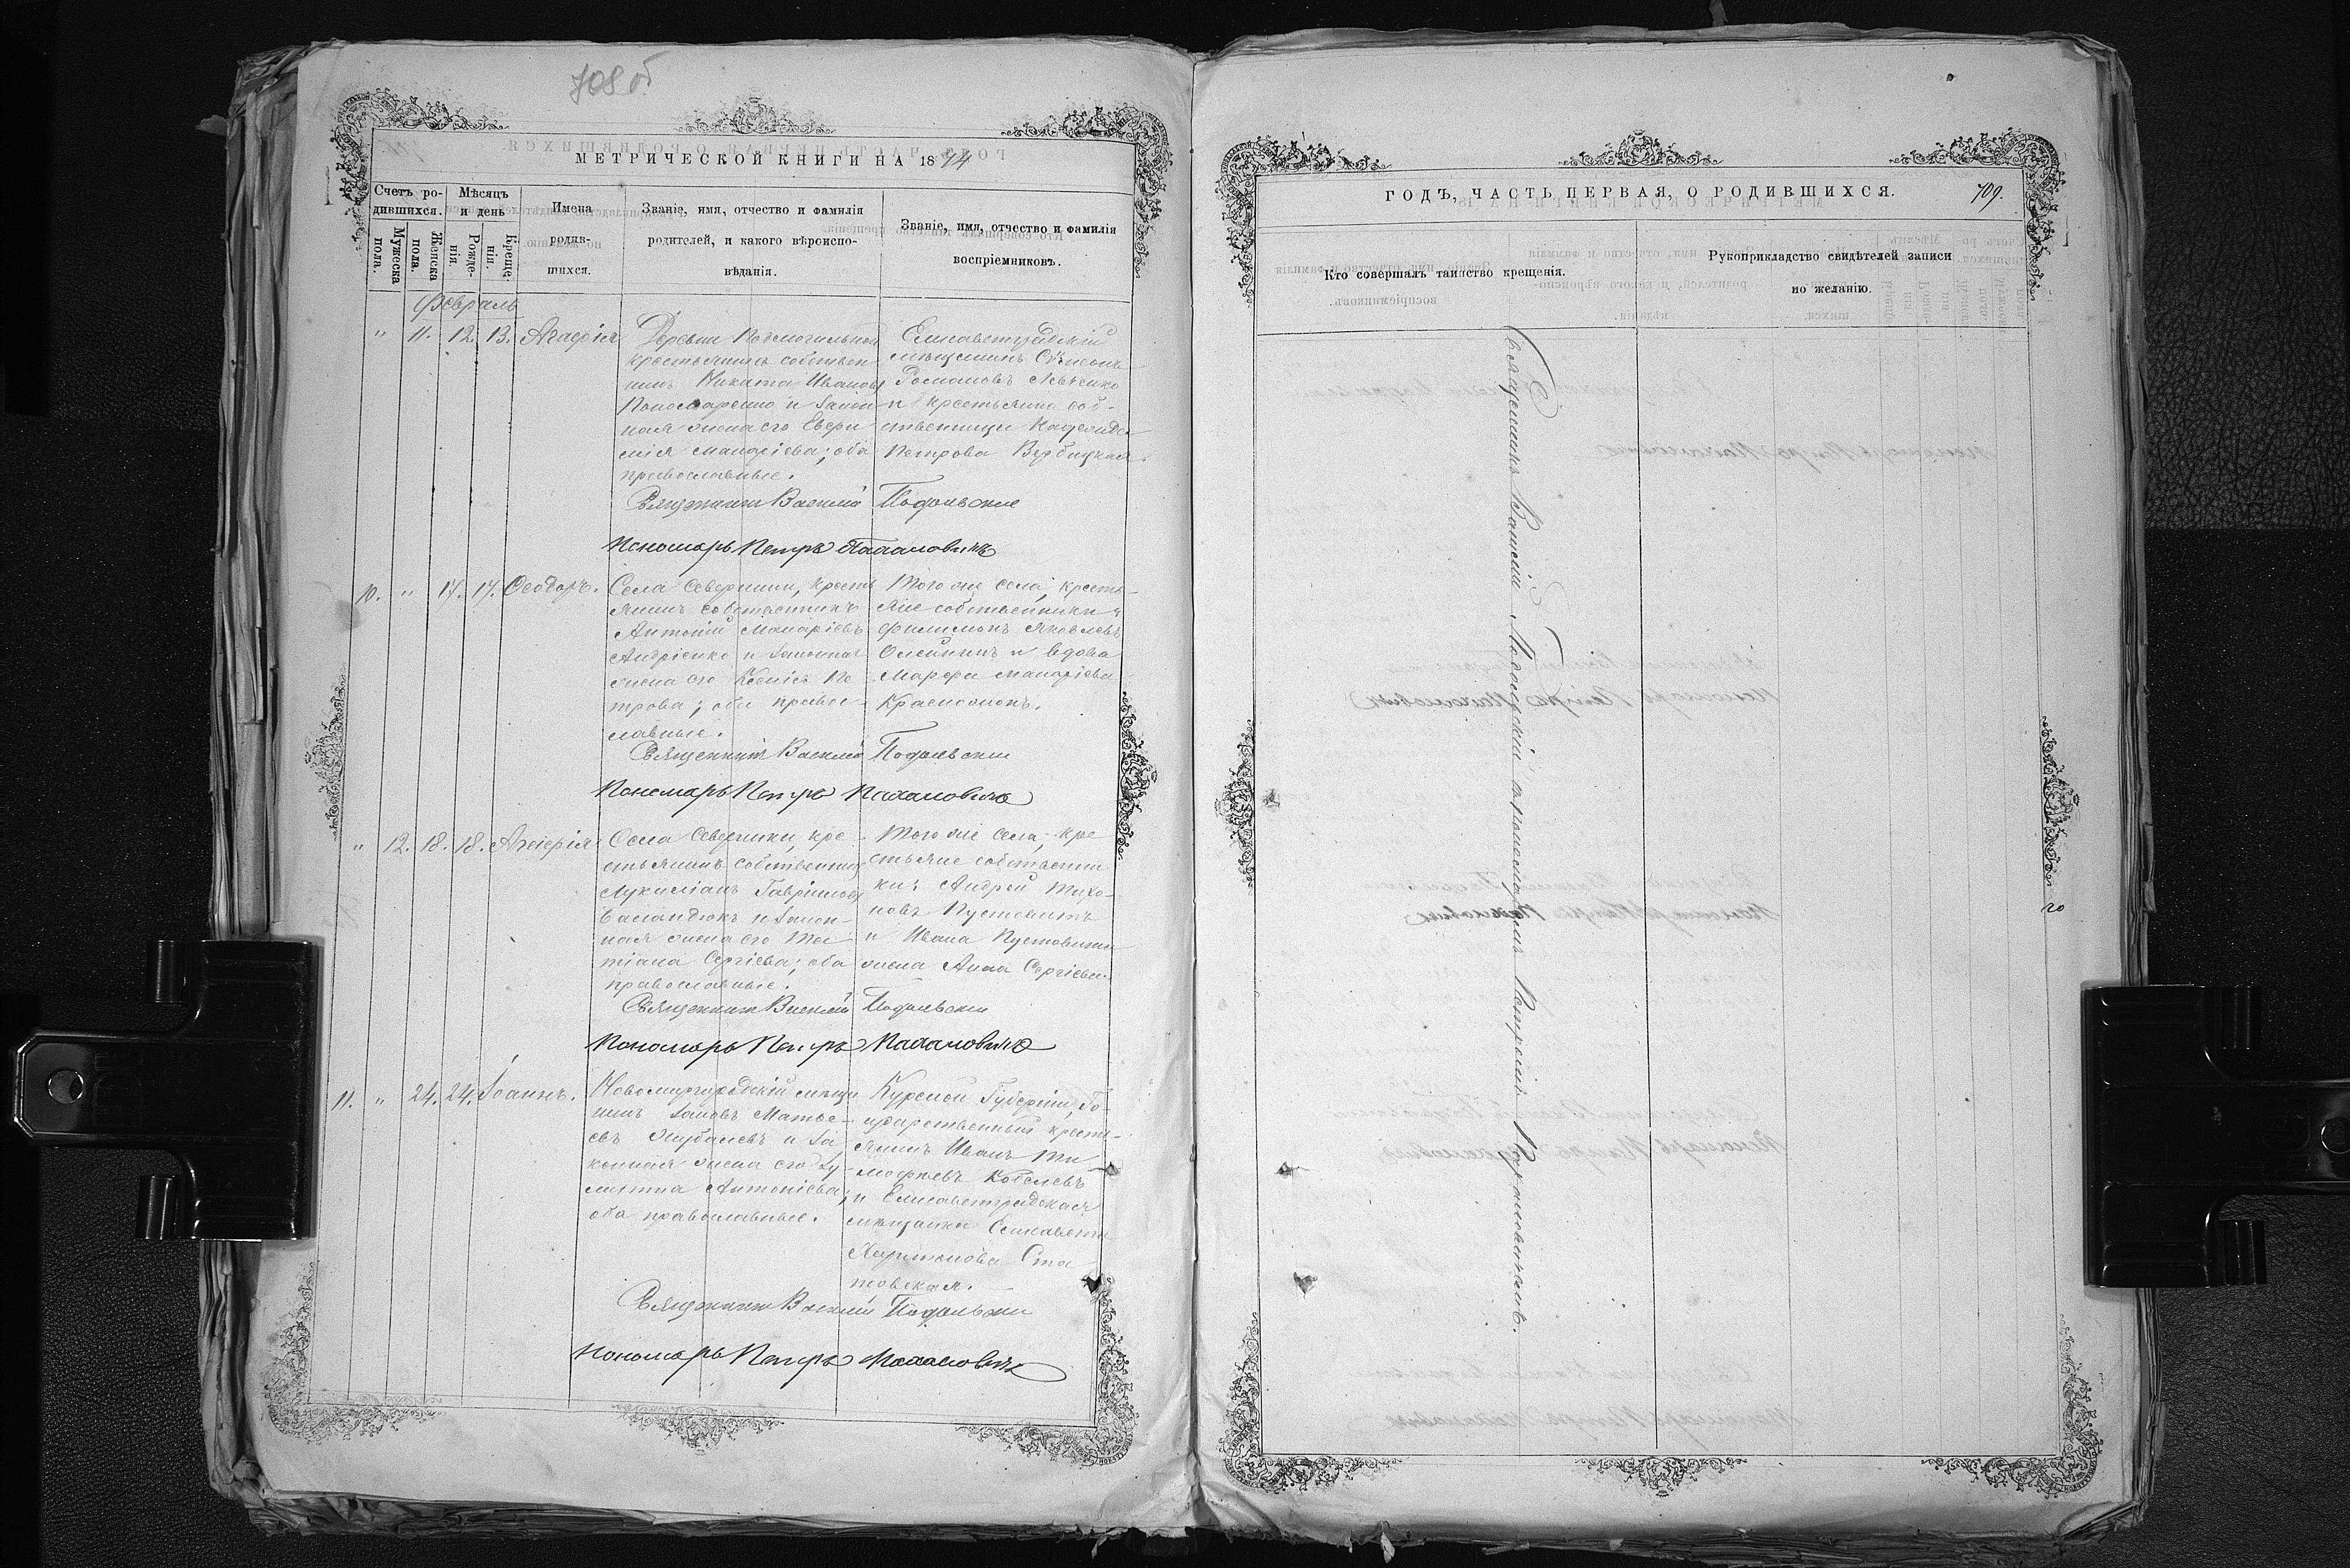 708 об
МЕТРИЧЕСКОЙ КНИГИ НА 1874
Счетъ ро-
дившихся.
Мужеска пола.
Женска пола.
Мѣсяцъ
и день
Рожде-
нія.
Креще-
нія.
Имена
родив-
шихся.
Званіе, имя, отчество и фамилія
родителей, и какого вѣроиспо-
вѣданія.
Званіе, имя, отчество и фамилія
воспріемниковъ.
Февраль
" 11. 12. 13. Агафія
Деревни Подмогильной
крестьянинъ собствен
никъ Никита Ивановъ
Пономаренко и закон
ная жена его Евфи
мія Макаріева; оба
православные.
Елисаветградскій
мѣщанинъ Симеонъ
Романовъ Левченко
и крестьянка соб-
ственница
Петрова Вербицкая.
Священникъ Василій Подольскій
Пономарь Петръ Палаловичъ
10. " 17. 17. Ѳеодоръ.
Села Северинки, кресть
янинъ собственникъ
Антоній Макаріевъ
Андріенко и законная
жена его Ксенія Пе
трова; оба правос-
лавные.
Того же села, кресть-
яне собственники:
Филимонъ Яковлевъ
Олейникъ и вдова
Марфа Макаріева
Священникъ Василій Подольскій
Пономарь Петръ Палаловичъ
" 12. 18. 18.
Села Северинки, кре
стьянинъ собственникъ
Лукиліанъ Гавріиловъ
и закон-
ная жена его Та
тіана Сергіева; оба
православные.
Того же села, кре
стьяне собственни
ки: Андрей Тихо-
новъ Пустовитъ
и Ивана Пустовита
жена Анна Сергіева.
Священникъ Василій Подольскій
Пономарь Петръ Палаловичъ
11. " 24. 24. Іоаннъ.
Новомиргородскій мѣща
нинъ Іаковъ Матѳе-
евъ и за
конная жена его Іу
литта Антоніева;
оба православные.
Курской Губерніи, Го-
сударственный кресть-
янинъ Иванъ Ти
моѳеевъ Кобелевъ
и Елисаветградская
мѣщанка Елисавета
Харитонова
Священникъ Василій Подольскій
Пономарь Петръ Палаловичъ
ГОДЪ, ЧАСТЬ ПЕРВАЯ, О РОДИВШИХСЯ.
709.
Кто совершалъ таинство крещенія.
Рукоприкладство свидѣтелей записи
по желанію.
Священникъ Василій Подольскій съ пономаремъ Петромъ Палаловичемъ.